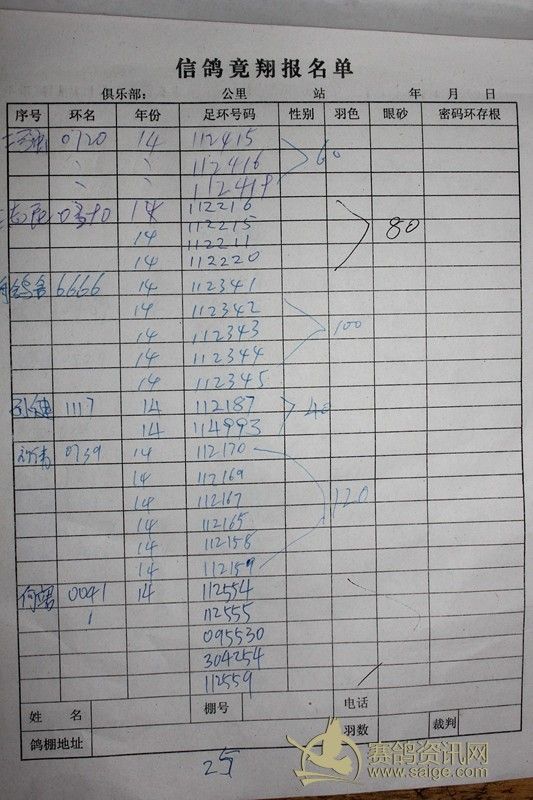 信鸽竟翔报名单
俱乐部： 公里 站 年 月 日
序号 环名 年份 足环号码 性别 羽色 眼砂 密码环存根
0120 14 112415
112416 60
112419
14 112216
14 112215 80
14 112211
14 112220
6666 14 112341
14 112342
14 112343 100
14 112344
14 112345
1117 14 112187 40
14 114993
0739 14 112170
14 112169
14 112167 120
14 112165
14 112158
14 112159
0041 14 112554
112555
095530
304254
112559
姓 名 棚号 电话
鸽棚地址 羽数 裁判
25
赛鸽资讯网
www.saige.com